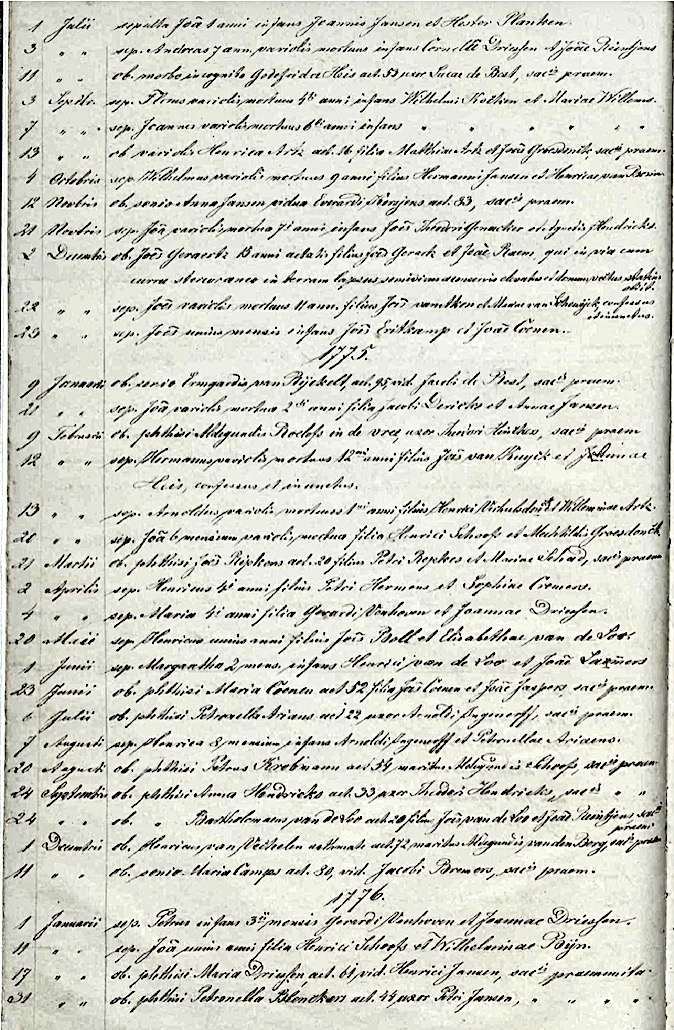 1 Julii sepulta Joã 1 anni infans Joannis Jansen et Hester Planken.
3 " " sep. Andreas 7 ann. variolis mortuus infans Cornelii Driessen et Joãe Reintjens
11 " " ob. morbo incognito Godefrida Heis aet. 53 uxor Lucae de Best, sacis praem.
3 Septbr. sep. Florus variolis mortuus 4ti anni infans Wilhelmi Kosken et Mariae Willems.
7 " " sep. Joannes variolis mortuus 6ti anni infans " " " " "
13 " " ob. variolis Henrica Artz aet. 16 filia Matthiae Artz et Joãe Groesdonk, sacis praem.
4 Octobris sep. Wilhelmus variolis mortuus 9 anni filius Hermanni Jansen et Henricae van
12 Novbris ob. senio Anna Jansen vidua Everardi Kersjens aet. 83, sacis praem.
21 Novbris sep. Joã variolis mortua 7i anni, infans Joãs Theodori et Agnetis Hendricks.
2 Decembris ob. Joãs Geraertz 13 anni aetatis filius Joãs Gerertz et Joãe Raem, qui in via cum
curru stercoraneo in terram lapsus, semivivus elevatus et domum vectus statim obiit.
22 " " sep. Joãs variolis mortuus 11 ann. filius Joãs van Aken et Mariae van confessus et inunctus.
25 " " sep. Joãs unius mensis infans Joãs Eritkamp et Joãe Coenen.
1775.
9 Januarii ob. senio Ermgardis van Rijckelt, aet. 95, vid. Jacobi de Best, sacis praem.
21 " " sep. Joã, variolis mortua 2di anni filia Jacobi Dericks et Annae Jansen.
9 Februarii ob. phthisi Aldegundis Roeloss in de vree, uxor Theodori, sacis praem
12 " " sep. Hermannus variolis mortuus 12mi anni filius Joãs van Kuijk et
Heis, confessus et inunctus.
13 " " sep. Arnoldus, variolis mortuus 1mi anni filius Henrici et Willeminae Artz.
20 " " sep. Joã 6 mensium variolis mortua filia Henrici Schoofs et Mechtildis Groesdonck
21 Martii ob. phthisi Joãs Repkens aet. 20 filius Petri Repkes et Mariae, sacis praem
2 Aprilis sep. Henricus 4i anni filius Petri Hermens et Sophiae Cremers.
4 " " sep. Maria 4i anni filia Gerardi Venhoven et Joannae Driessen.
20 Maii sep. Henricus unius anni filius Joãs Boll et Elisabethae van de Loo.
1 Junii sep. Margaretha 2 mens. infans Henrici van de Loo et Joãe
23 Junii ob. phthisi Maria Coenen aet 52 filia Joãs Coenen et Joãe Jaspers sacis praem.
6 Julii ob. phthisi Petronella Arians aet 22 uxor Arnoldi Ingenerff, sacis praem.
7 Augusti sep. Henrica 8 mensium infans Arnoldi Ingenerff et Petronellae Ariaens.
20 Augusti ob. phthisi Petrus Kirstmann aet. 54, maritus Aldegundis Schoofs, sacis praem
24 Septembris ob. phthisi Anna Hendricks aet. 33 uxor Theodori Hendricks, sacis " "
24 " " ob. " Bartholomaeus van de Loo aet. 20 filius Joãs van de Loo et Joãe Reintjens sacis praem
1 Decembris ob. Henricus van Vechelen asthmate aet. 72 maritus Aldegundis van den Berg sacis praem
11 " " ob. senio Maria Camps aet. 80, vid. Jacobi Bremers, sacis praem.
1776.
1 Januarii sep. Petrus infans 3ii mensis Gerardi Venhoven et Joannae Driessen.
11 " " sep. Joã unius anni filia Henrici Schoofs et Wilhelminae Boijn.
17 " " ob. phthisi Maria Driessen aet. 61, vid. Henrici Jansen, sacis praemunita.
31 " " ob. phthisi Petronella aet. 45, uxor Petri Jansen, " " " "